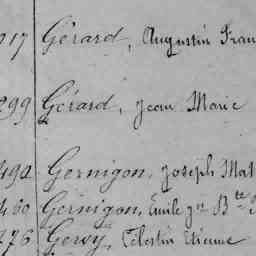 217 Gérard, Augustin Fran
299 Gérard, Jean Marie
492 Gernigon, Joseph Mat
460 Gernigon, Emile Jn Bte
476 Gervy, Célestin Etienne